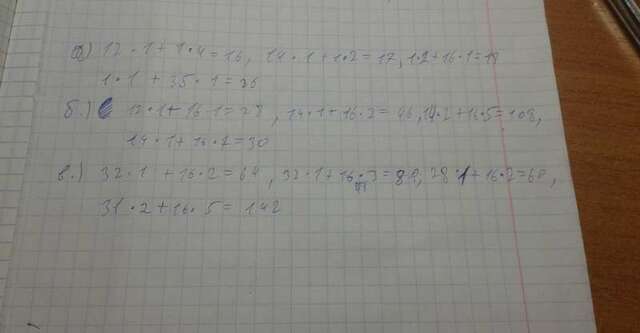 а) 12·1+1·4=16, 14·1+1·2=17, 1·2+16·1=18
1·1 + 35·1=36
б.) 12·1+16·1=28, 14·1+16·2=46, 14·2+16·5=108,
14·1+16·2=30
в.) 32·1 +16·2=64, 32·1+16·3=81, 28·1+16·2=60,
31·2+16·5= 142